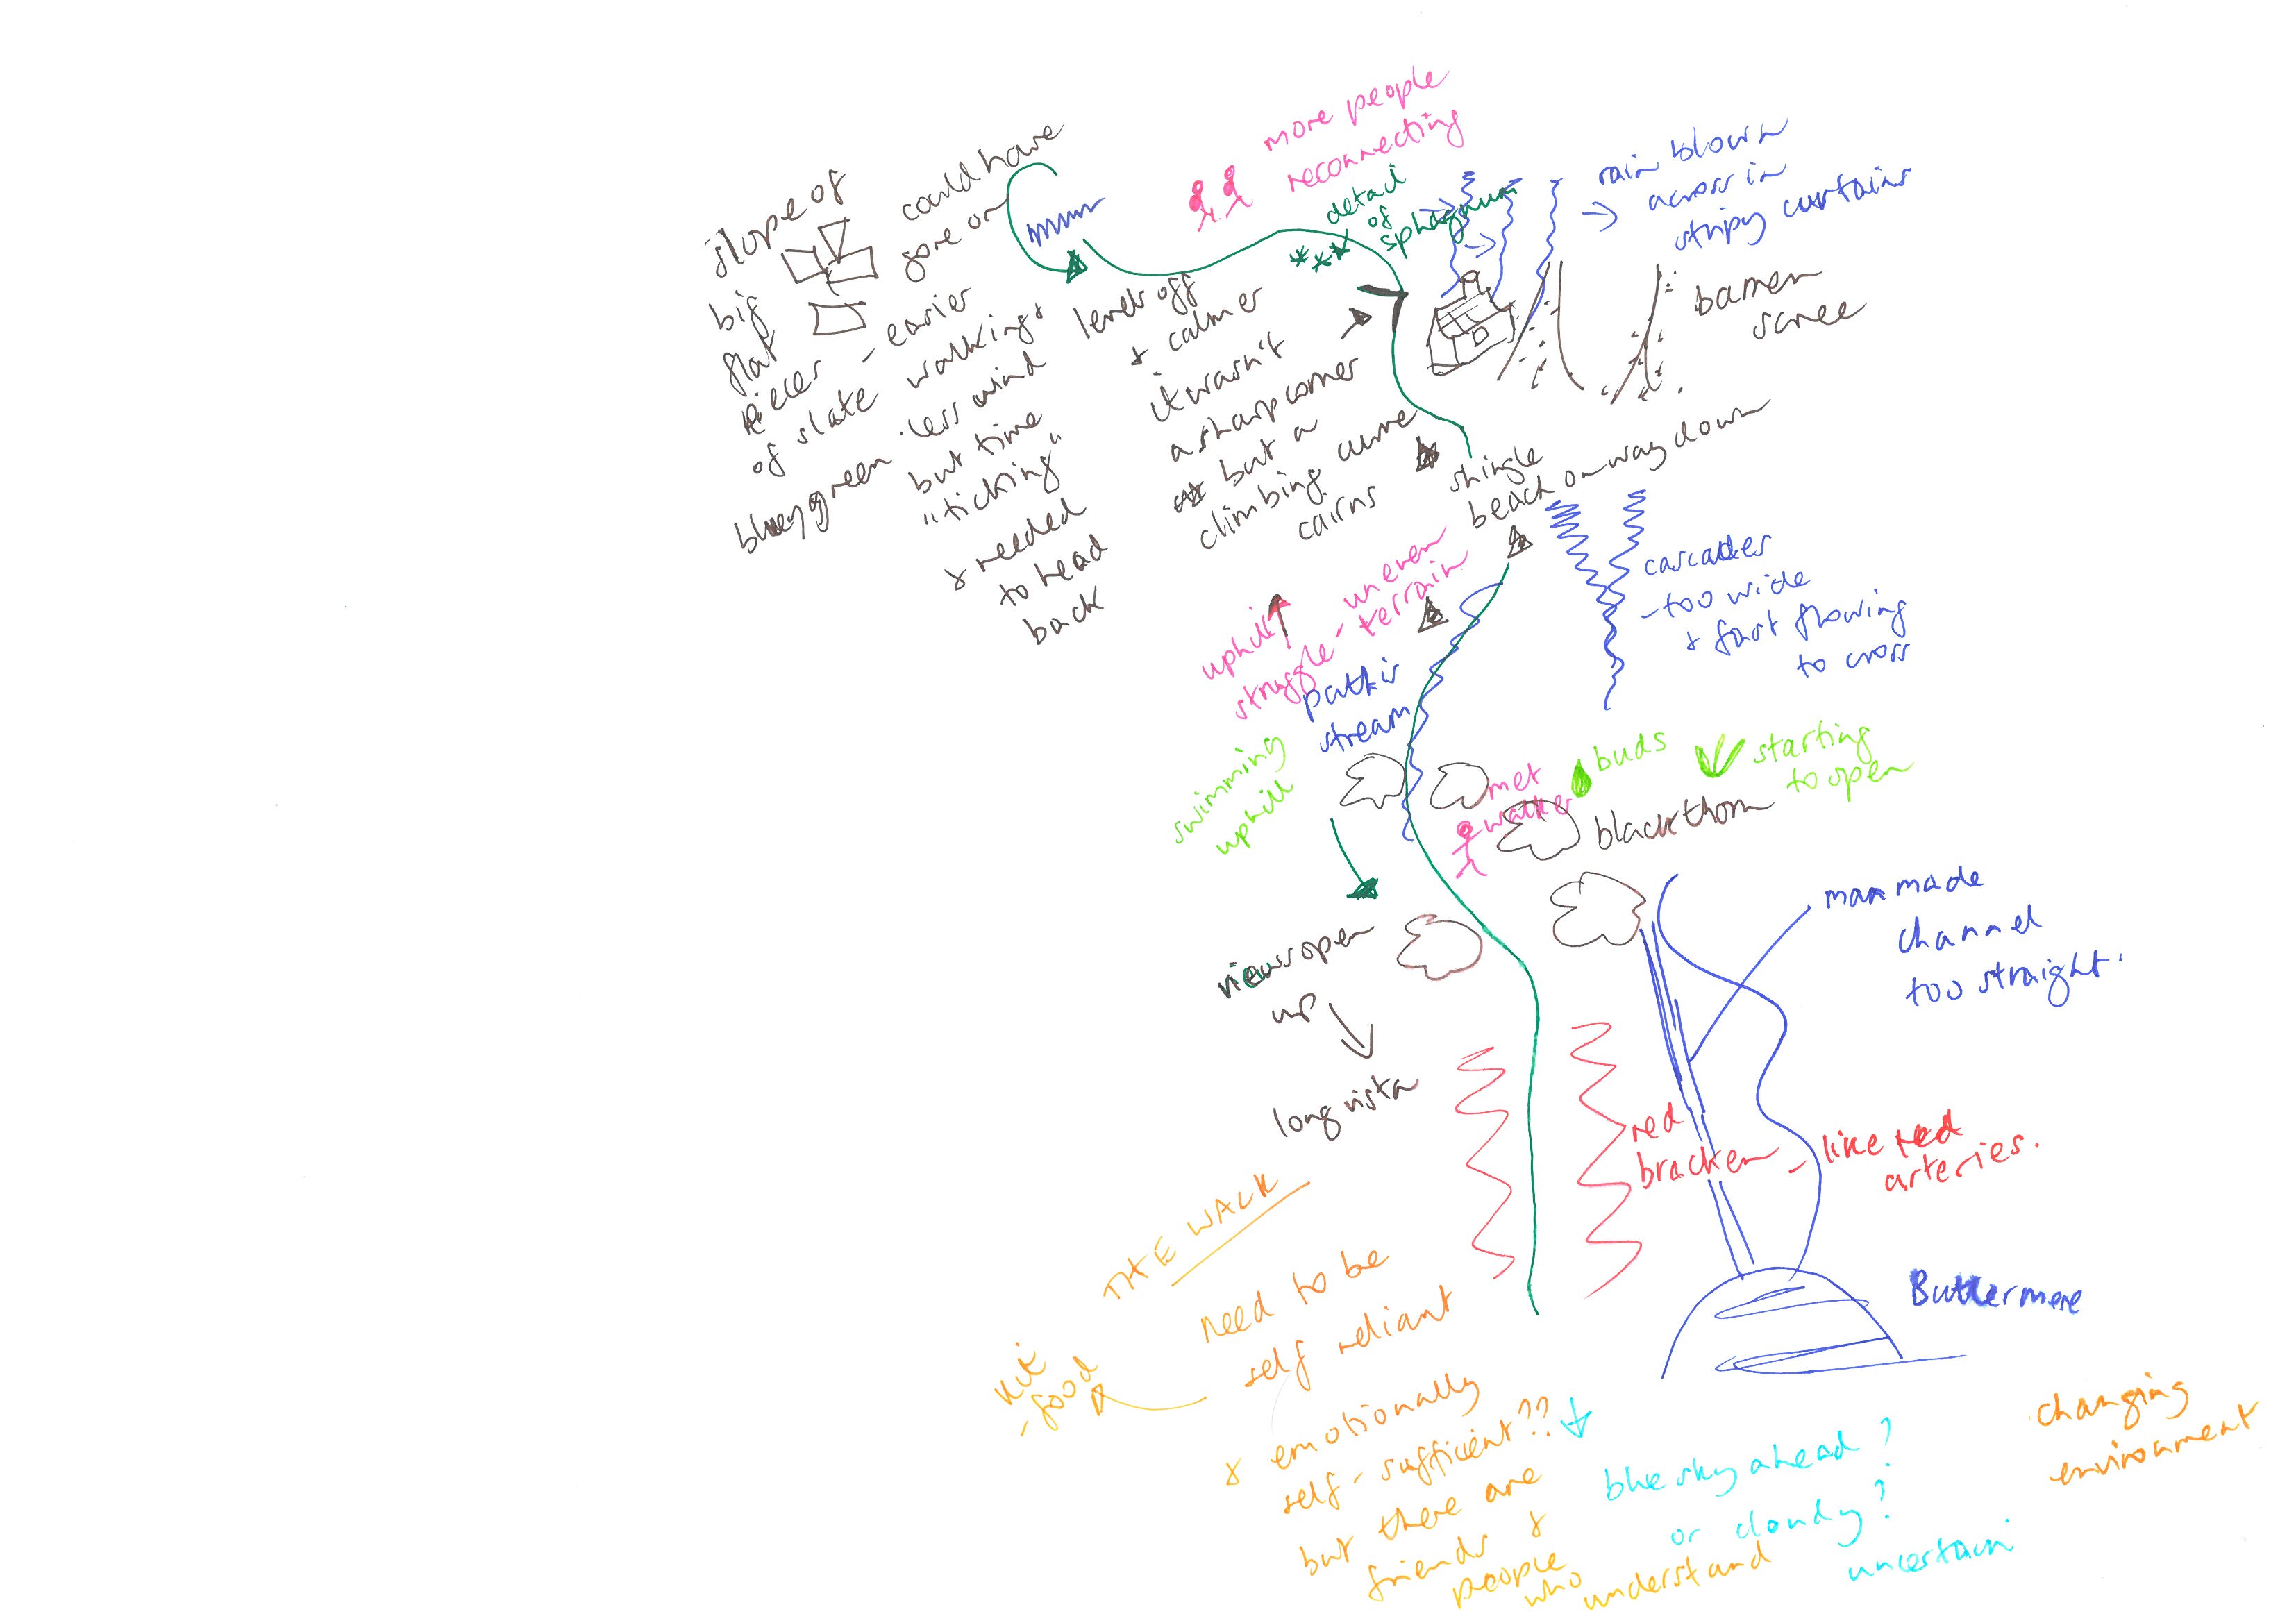 more people
reconnecting
detail
of
sphagnum
rain blown
across in
stripy curtains
barren
scree
slope of
big
flat
pieces
of slate
bluey green
could have
gone on
- easier
walking +
. less wind
but time
"ticking"
& needed
to head
back
levels off
& calmer
it wasn't
a sharp corner
but a
climbing curve
cairns
shingle
beach on way down
cascades
- too wide
& fast flowing
to cross
uphill
struggle - uneven
terrain
path is
stream
swimming
uphill
met
walker
buds
starting
to open
blackthorn
man made
channel
too straight.
views open
up
long vista
red
bracken - like red
arteries.
Buttermere
THE WALK
need to be
self reliant
kit
- food
& emotionally
self-sufficient??
but there are
friends &
people
who understand
blue sky ahead?
or cloudy?
uncertain
changing
environment